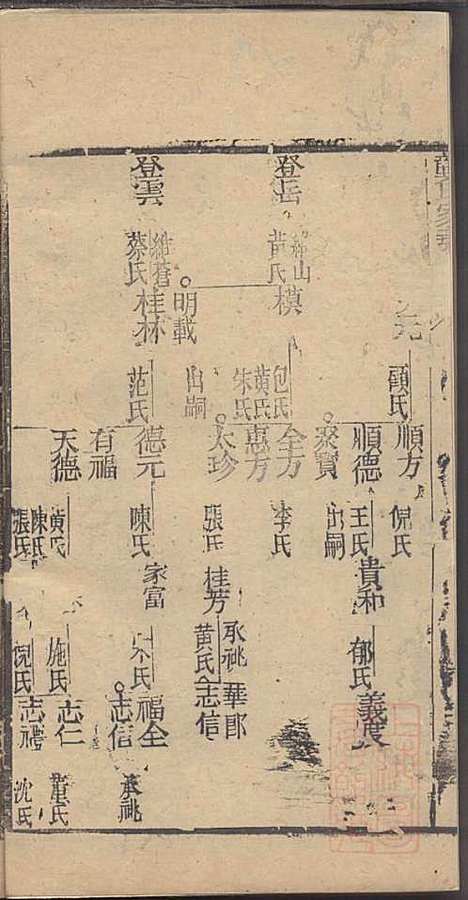 登岳
黃氏
模
包氏
黃氏
朱氏
登雲
維蒼
蔡氏
桂林
明載
出嗣
范氏
顧氏
順方
倪氏
順德
王氏
貴和
郁氏
義良
出嗣
全方
李氏
惠方
太珍
張氏
桂芳
承祧
黃氏
志信
華郎
德元
陳氏
家富
福全
志信
承祧
有福
天德
黃氏
陳氏
張氏
施氏
倪氏
志仁
志福
董氏
沈氏